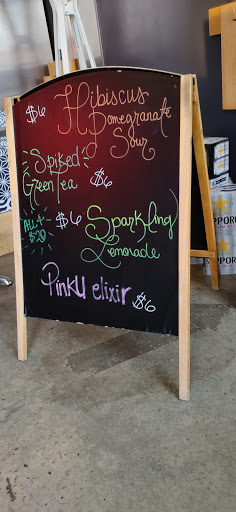 $6 Hibiscus
Pomegranate
Sour
Spiked
Green Tea $6
All 4
$20
$6 Sparkling
Lemonade
PinkU elixir $6